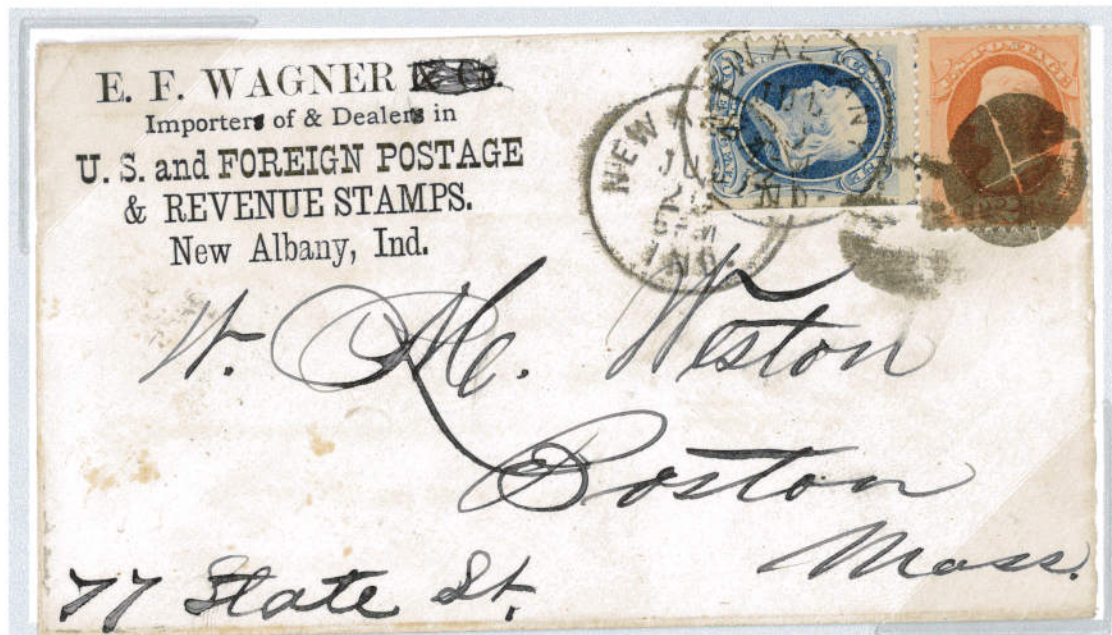 E. F. WAGNER & Co.
Importers of & Dealers in
U. S. and FOREIGN POSTAGE
& REVENUE STAMPS.
New Albany, Ind.
U.S. POSTAGE
NEW
IND.
W. H. C. Weston
Boston
Mass.
77 State St.